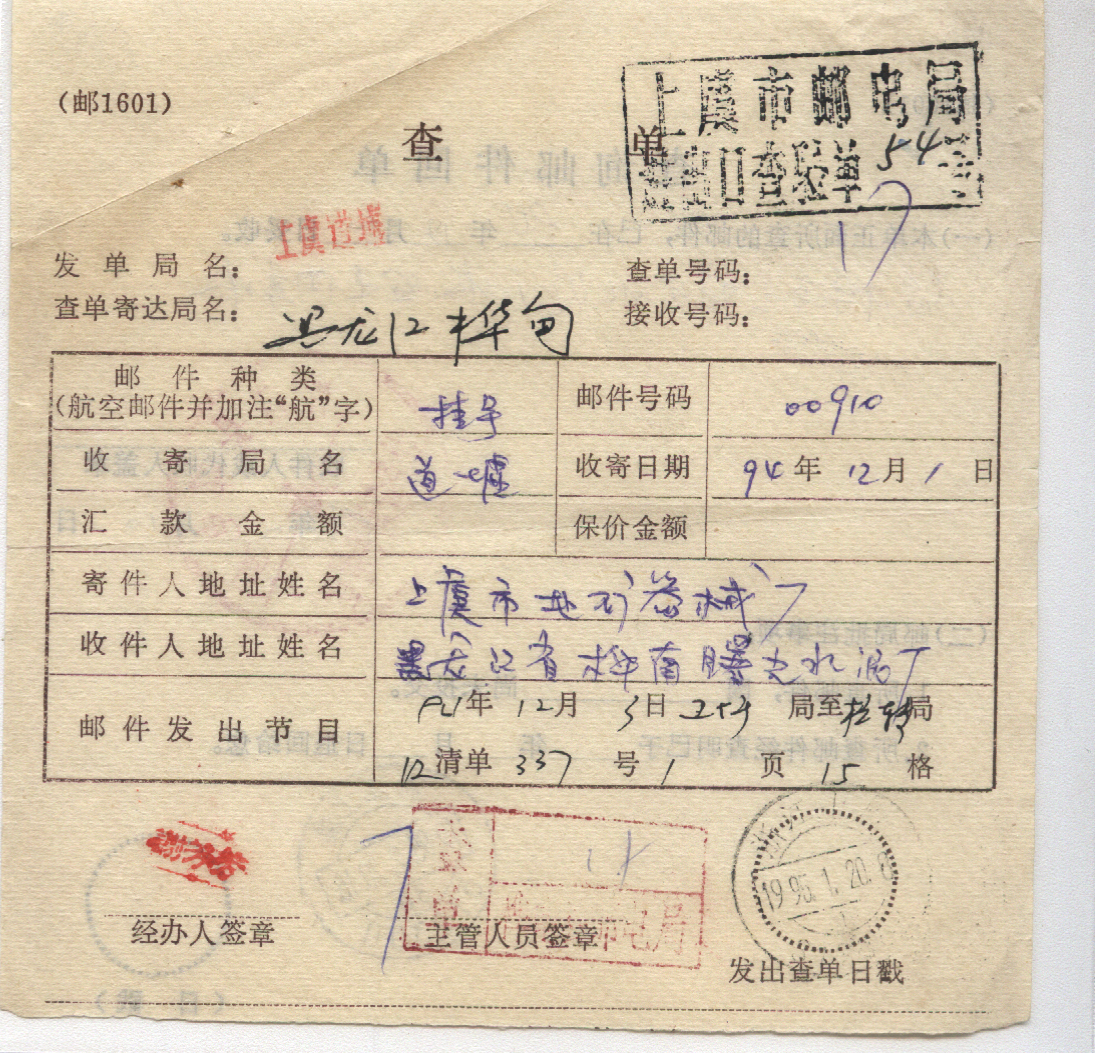 (邮1601)
查单
上虞市邮电局
出口查验单 54
17
上虞道墟
发单局名:
查单号码:
查单寄达局名: 黑龙江桦甸
接收号码:
邮件种类
(航空邮件并加注“航”字)
挂号
邮件号码
00910
收寄局名
道墟
收寄日期
94年12月1日
汇款金额
保价金额
寄件人地址姓名
上虞市地矿器械厂
收件人地址姓名
黑龙江省桦南曙光水泥厂
邮件发出节目
94年12月3日 局至 局
12清单337号1页15格
邮电局
经办人签章
主管人员签章
浙江
1995.1.20.8
发出查单日戳